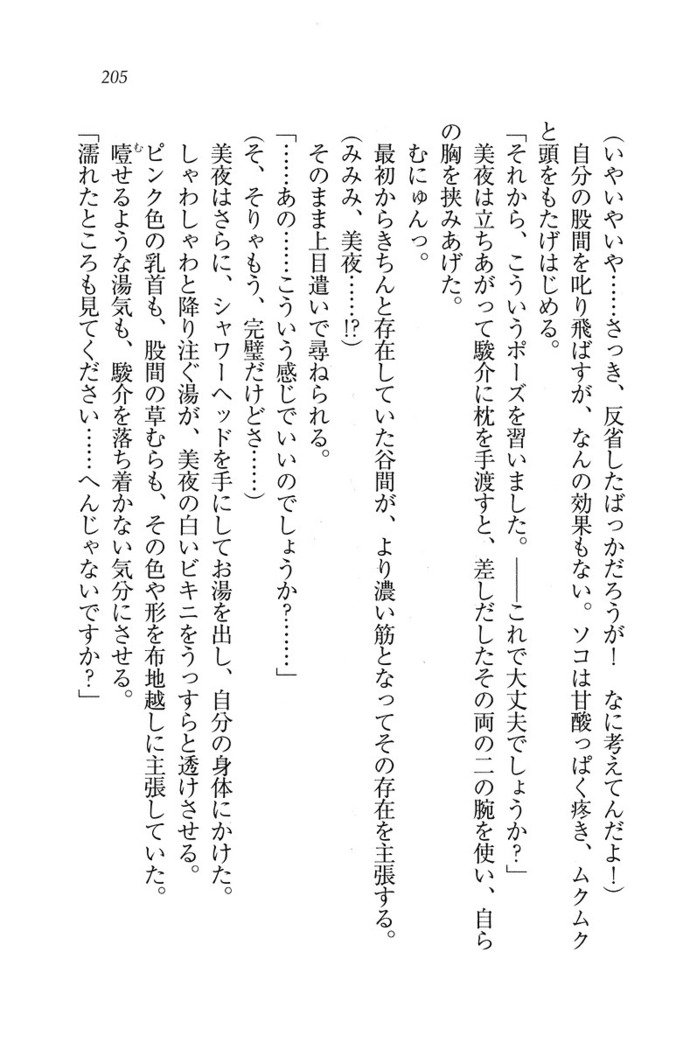 205
(いやいやいや……さっき、反省したばっかだろうが！　なに考えてんだよ！)
　自分の股間を叱り飛ばすが、なんの効果もない。ソコは甘酸っぱく疼き、ムクムク
と頭をもたげはじめる。
「それから、こういうポーズを習いました。――これで大丈夫でしょうか？」
　美夜は立ちあがって駿介に枕を手渡すと、差しだしたその両の二の腕を使い、自ら
の胸を挟みあげた。
　むにゅんっ。
　最初からきちんと存在していた谷間が、より濃い筋となってその存在を主張する。
(みみみ、美夜……!?)
　そのまま上目遣いで尋ねられる。
「……あの……こういう感じでいいのでしょうか？……」
(そ、そりゃもう、完璧だけどさ……)
　美夜はさらに、シャワーヘッドを手にしてお湯を出し、自分の身体にかけた。
　しゃわしゃわと降り注ぐ湯が、美夜の白いビキニをうっすらと透けさせる。
　ピンク色の乳首も、股間の草むらも、その色や形を布地越しに主張していた。
　噎せるような湯気も、駿介を落ち着かない気分にさせる。
「濡れたところも見てください……へんじゃないですか？」
む